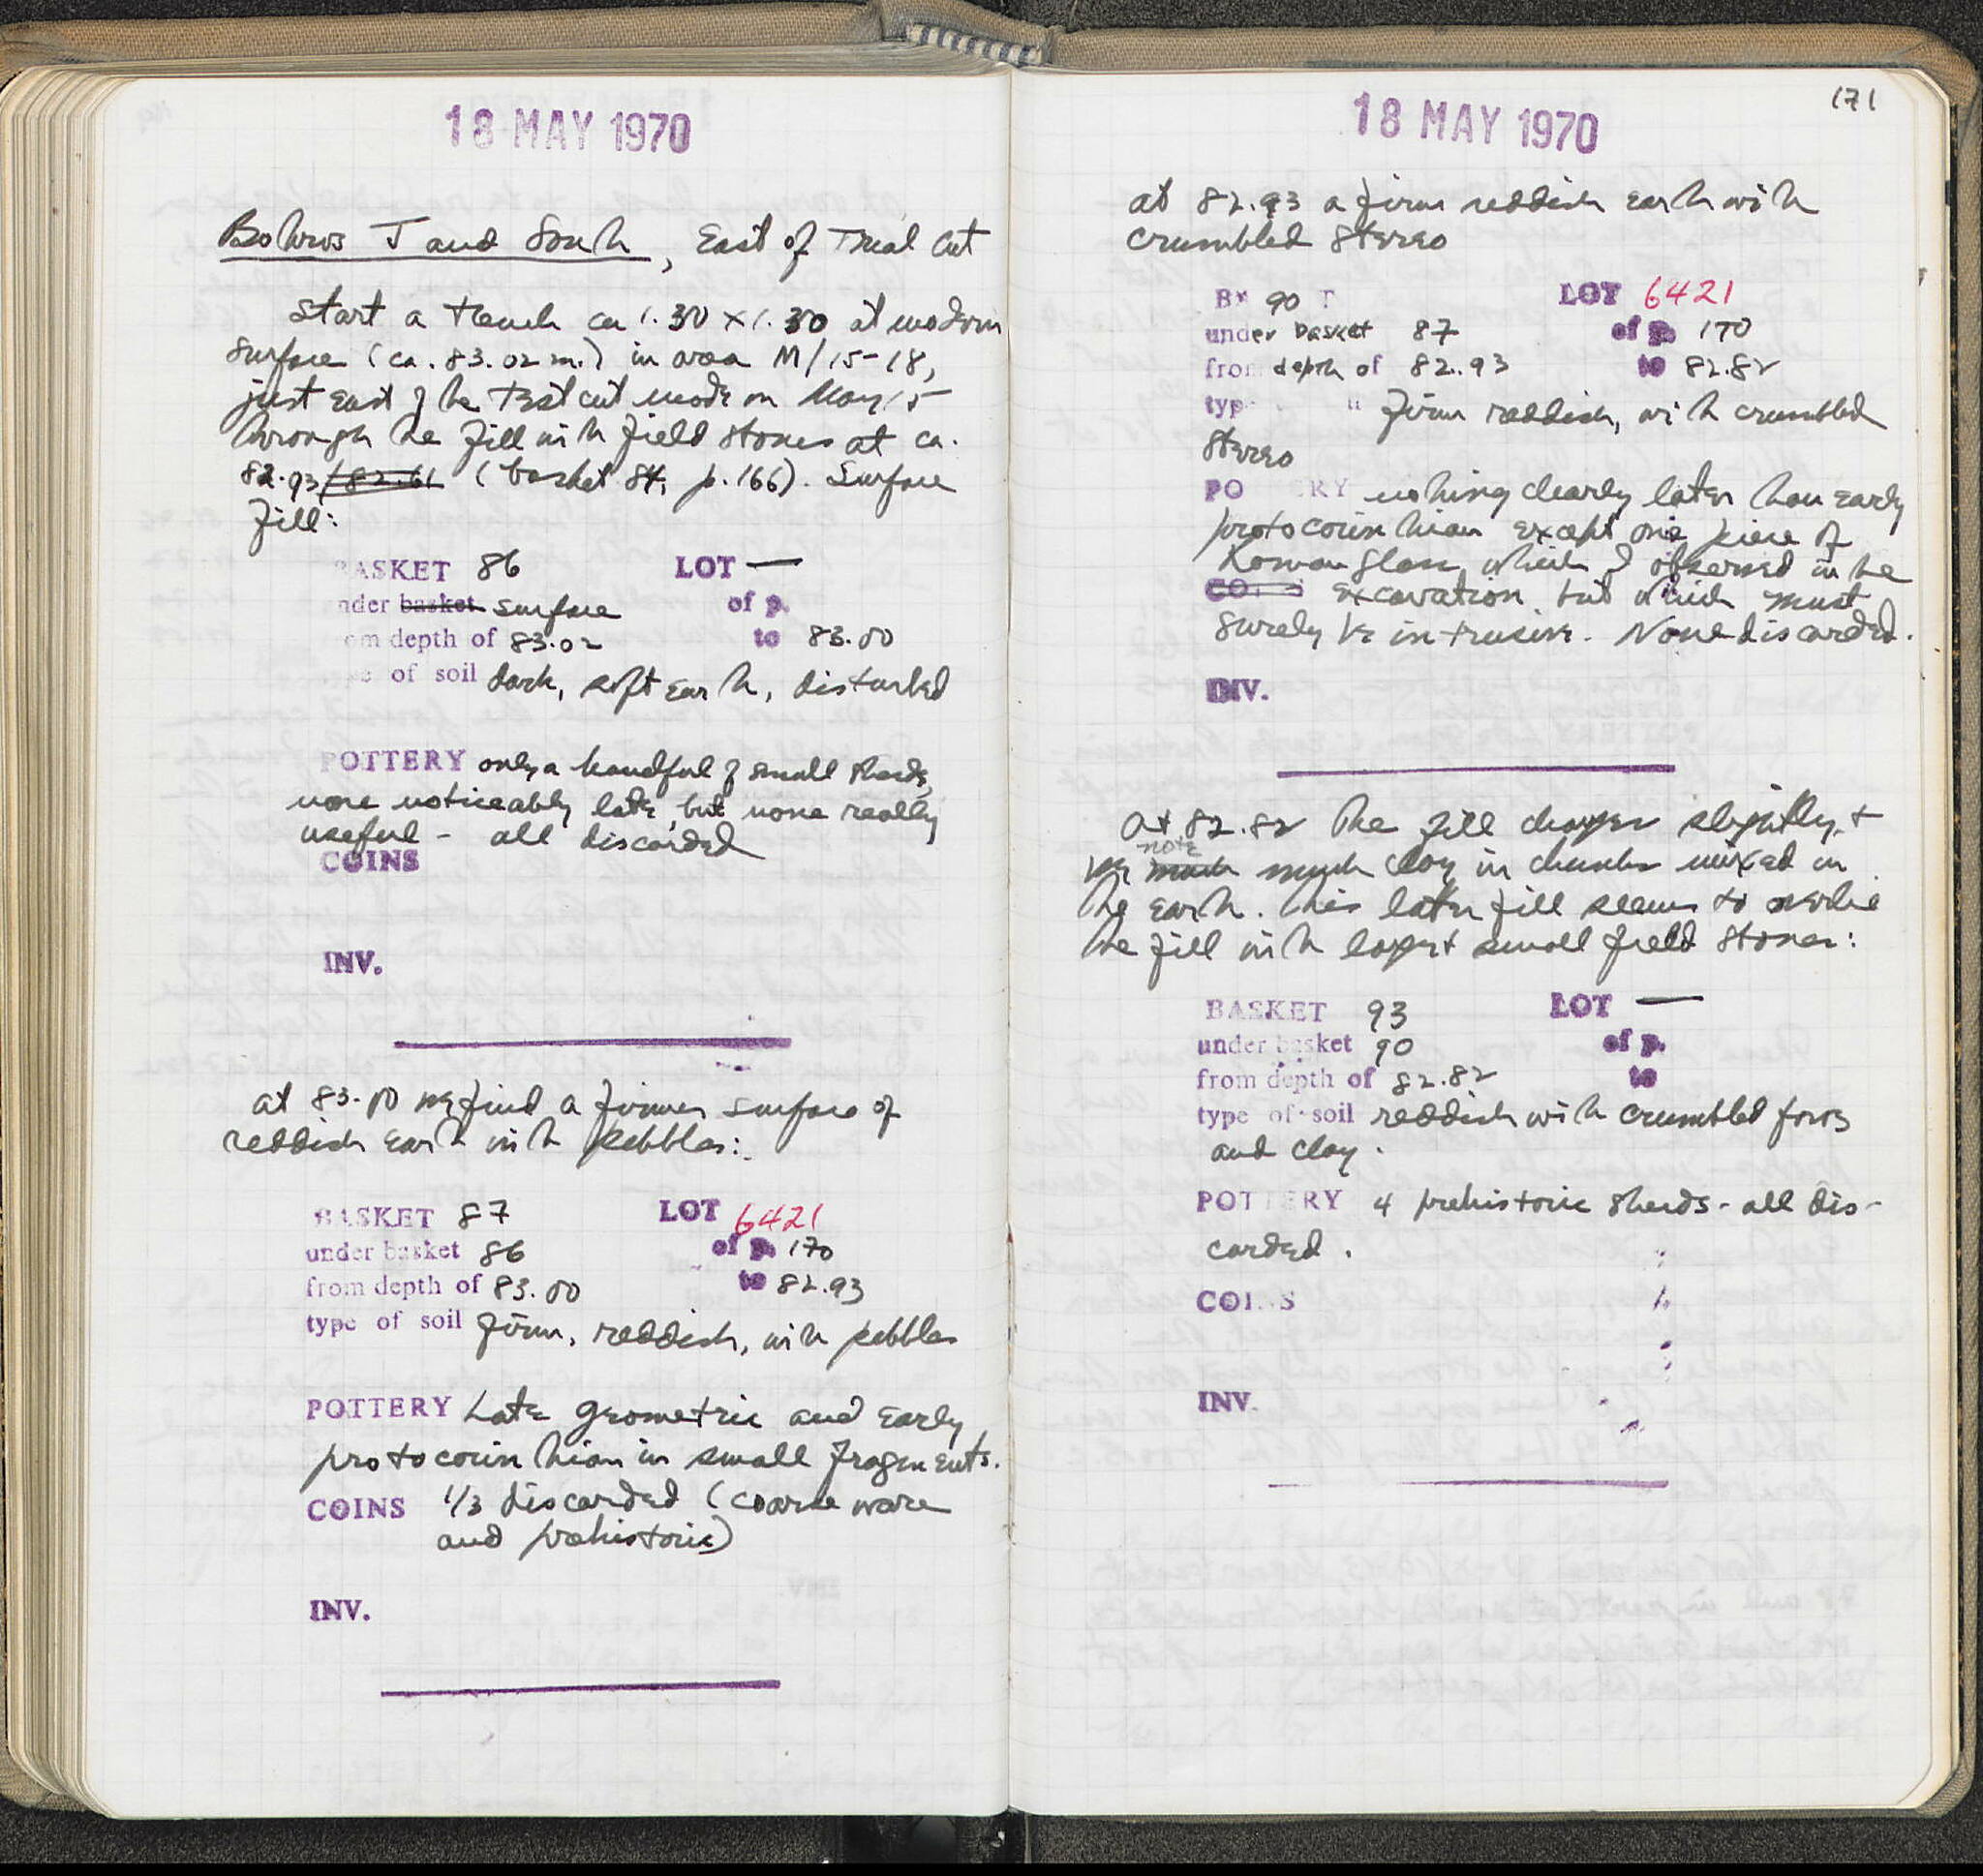 18 MAY 1970
Bothros J and South, East of Trial Cut
Start a trench ca 1.30 x 1.30 at modern
surface (ca. 83.02 m.) in area M/15-18,
just east of the test cut made on May 15
through the fill with field stones at ca.
82.93/82.61 (basket 84, p. 166). Surface
fill:
BASKET 86 LOT —
under basket surface of p.
from depth of 83.02 to 83.00
type of soil dark, soft earth, disturbed
POTTERY only a handful of small sherds,
none noticeably late, but none really
useful - all discarded
COINS
INV.
at 83.00 we find a firmer surface of
reddish earth with pebbles:
BASKET 87 LOT 6421
under basket 86 of p. 170
from depth of 83.00 to 82.93
type of soil firm, reddish, with pebbles
POTTERY Late Geometric and Early
protocorinthian in small fragments.
COINS 1/3 discarded (coarse ware
and prehistoric)
INV.
171
18 MAY 1970
at 82.93 a firm reddish earth with
crumbled stereo
BA 90 T LOT 6421
under basket 87 of p. 170
from depth of 82.93 to 82.82
type firm reddish, with crumbled
stereo
POTTERY nothing clearly later than early
protocorinthian except one piece of
Roman glass, which I observed in the
CO S excavation, but which must
surely be intrusive. None discarded.
INV.
At 82.82 the fill changes slightly, +
note
we much much clay in chunks mixed in
the earth. This later fill seems to overlie
the fill with large + small field stones:
BASKET 93 LOT —
under basket 90 of p.
from depth of 82.82 to
type of soil reddish with crumbled
and clay.
POTTERY 4 prehistoric sherds - all dis-
carded.
COINS
INV.